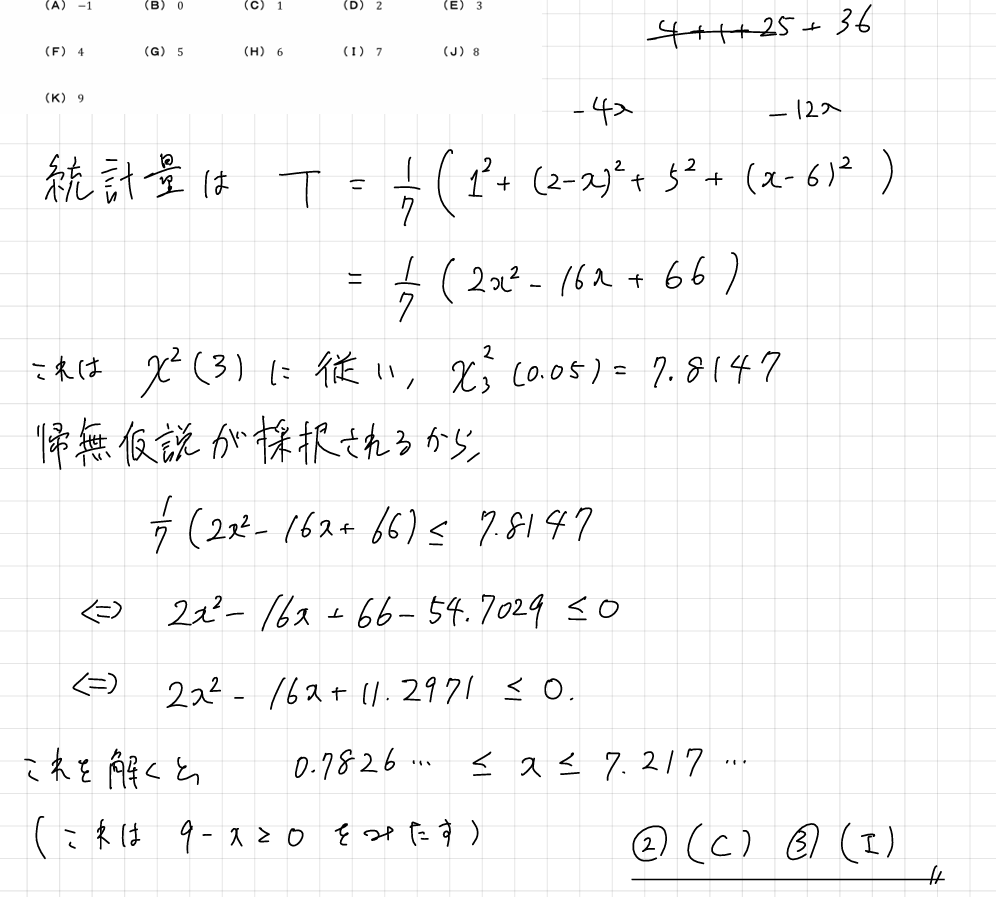 (A) -1 (B) 0 (C) 1 (D) 2 (E) 3
(F) 4 (G) 5 (H) 6 (I) 7 (J) 8
(K) 9
4+1+25+36
-4x -12x
統計量は T = 1/7 ( 1² + (2-x)² + 5² + (x-6)² )
= 1/7 ( 2x² - 16x + 66 )
これは χ²(3) に従い, χ₃²(0.05) = 7.8147
帰無仮説が採択されるから,
1/7 (2x² - 16x + 66) ≤ 7.8147
⇔ 2x² - 16x + 66 - 54.7029 ≤ 0
⇔ 2x² - 16x + 11.2971 ≤ 0.
これを解くと, 0.7826… ≤ x ≤ 7.217…
(これは 9-x ≥ 0 をみたす)
② (C) ③ (I)